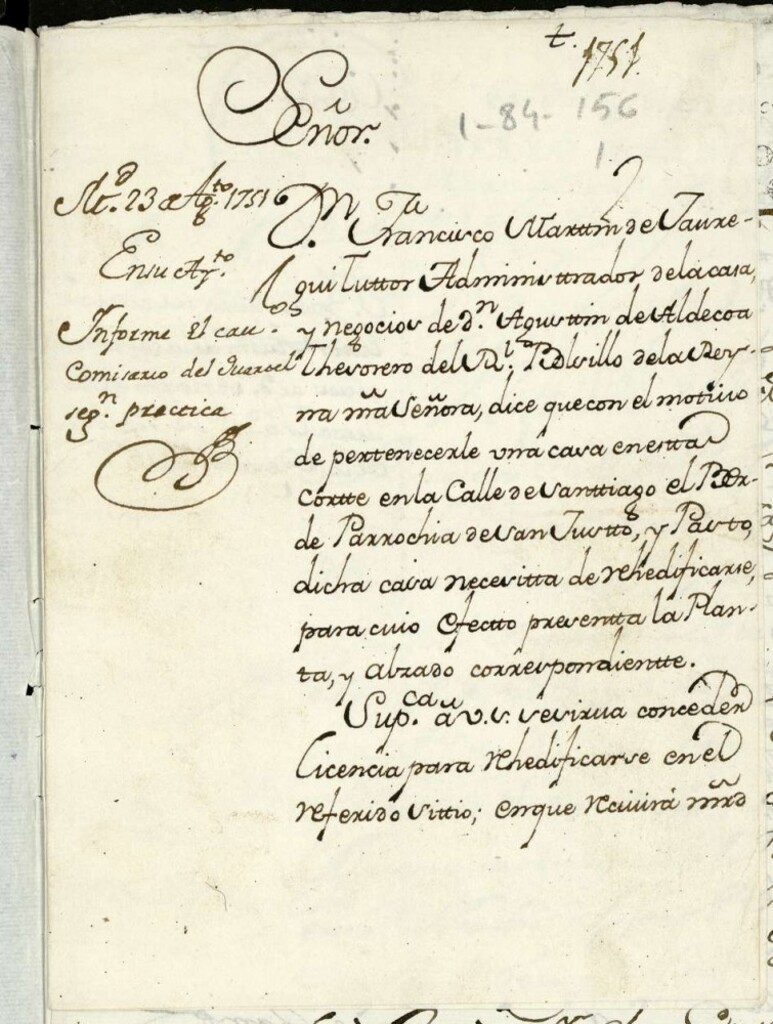 t. 1751.
Señor.
1-84-156
1
Md. 23 de Agto 1751
En su Ayto.
Informe el cavo.
Comisario del Quartel
segn. practica
Dn. Franco Francisco Martin de Jaure-
gui Tuttor Administtrador de la casa,
y negocios de dn. Agustin de Aldecoa
Thesorero del Rl. Bolsillo de la Rey-
na nrã Señora, dice que con el motivo
de pertenecerle una casa en estta
Cortte en la Calle de Santtiago el Ber-
de Parrochia de San Justto, y Pasto,
dicha casa necesitta de rehedificarse,
para cuio efectto presentta la Plan-
ta, y alzado correspondientte.
Supca. a V.S. se sirva conceder
licencia para rehedificarse en el
referido sittio; en que recivirá mrd